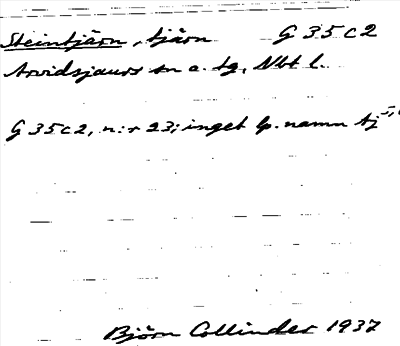 Steintjärn, tjärn G 35 c 2
Arvidsjaurs sn o. tg, Nbt l.
G 35 c 2, n:r 23; inget lp. namn
Björn Collinder 1937